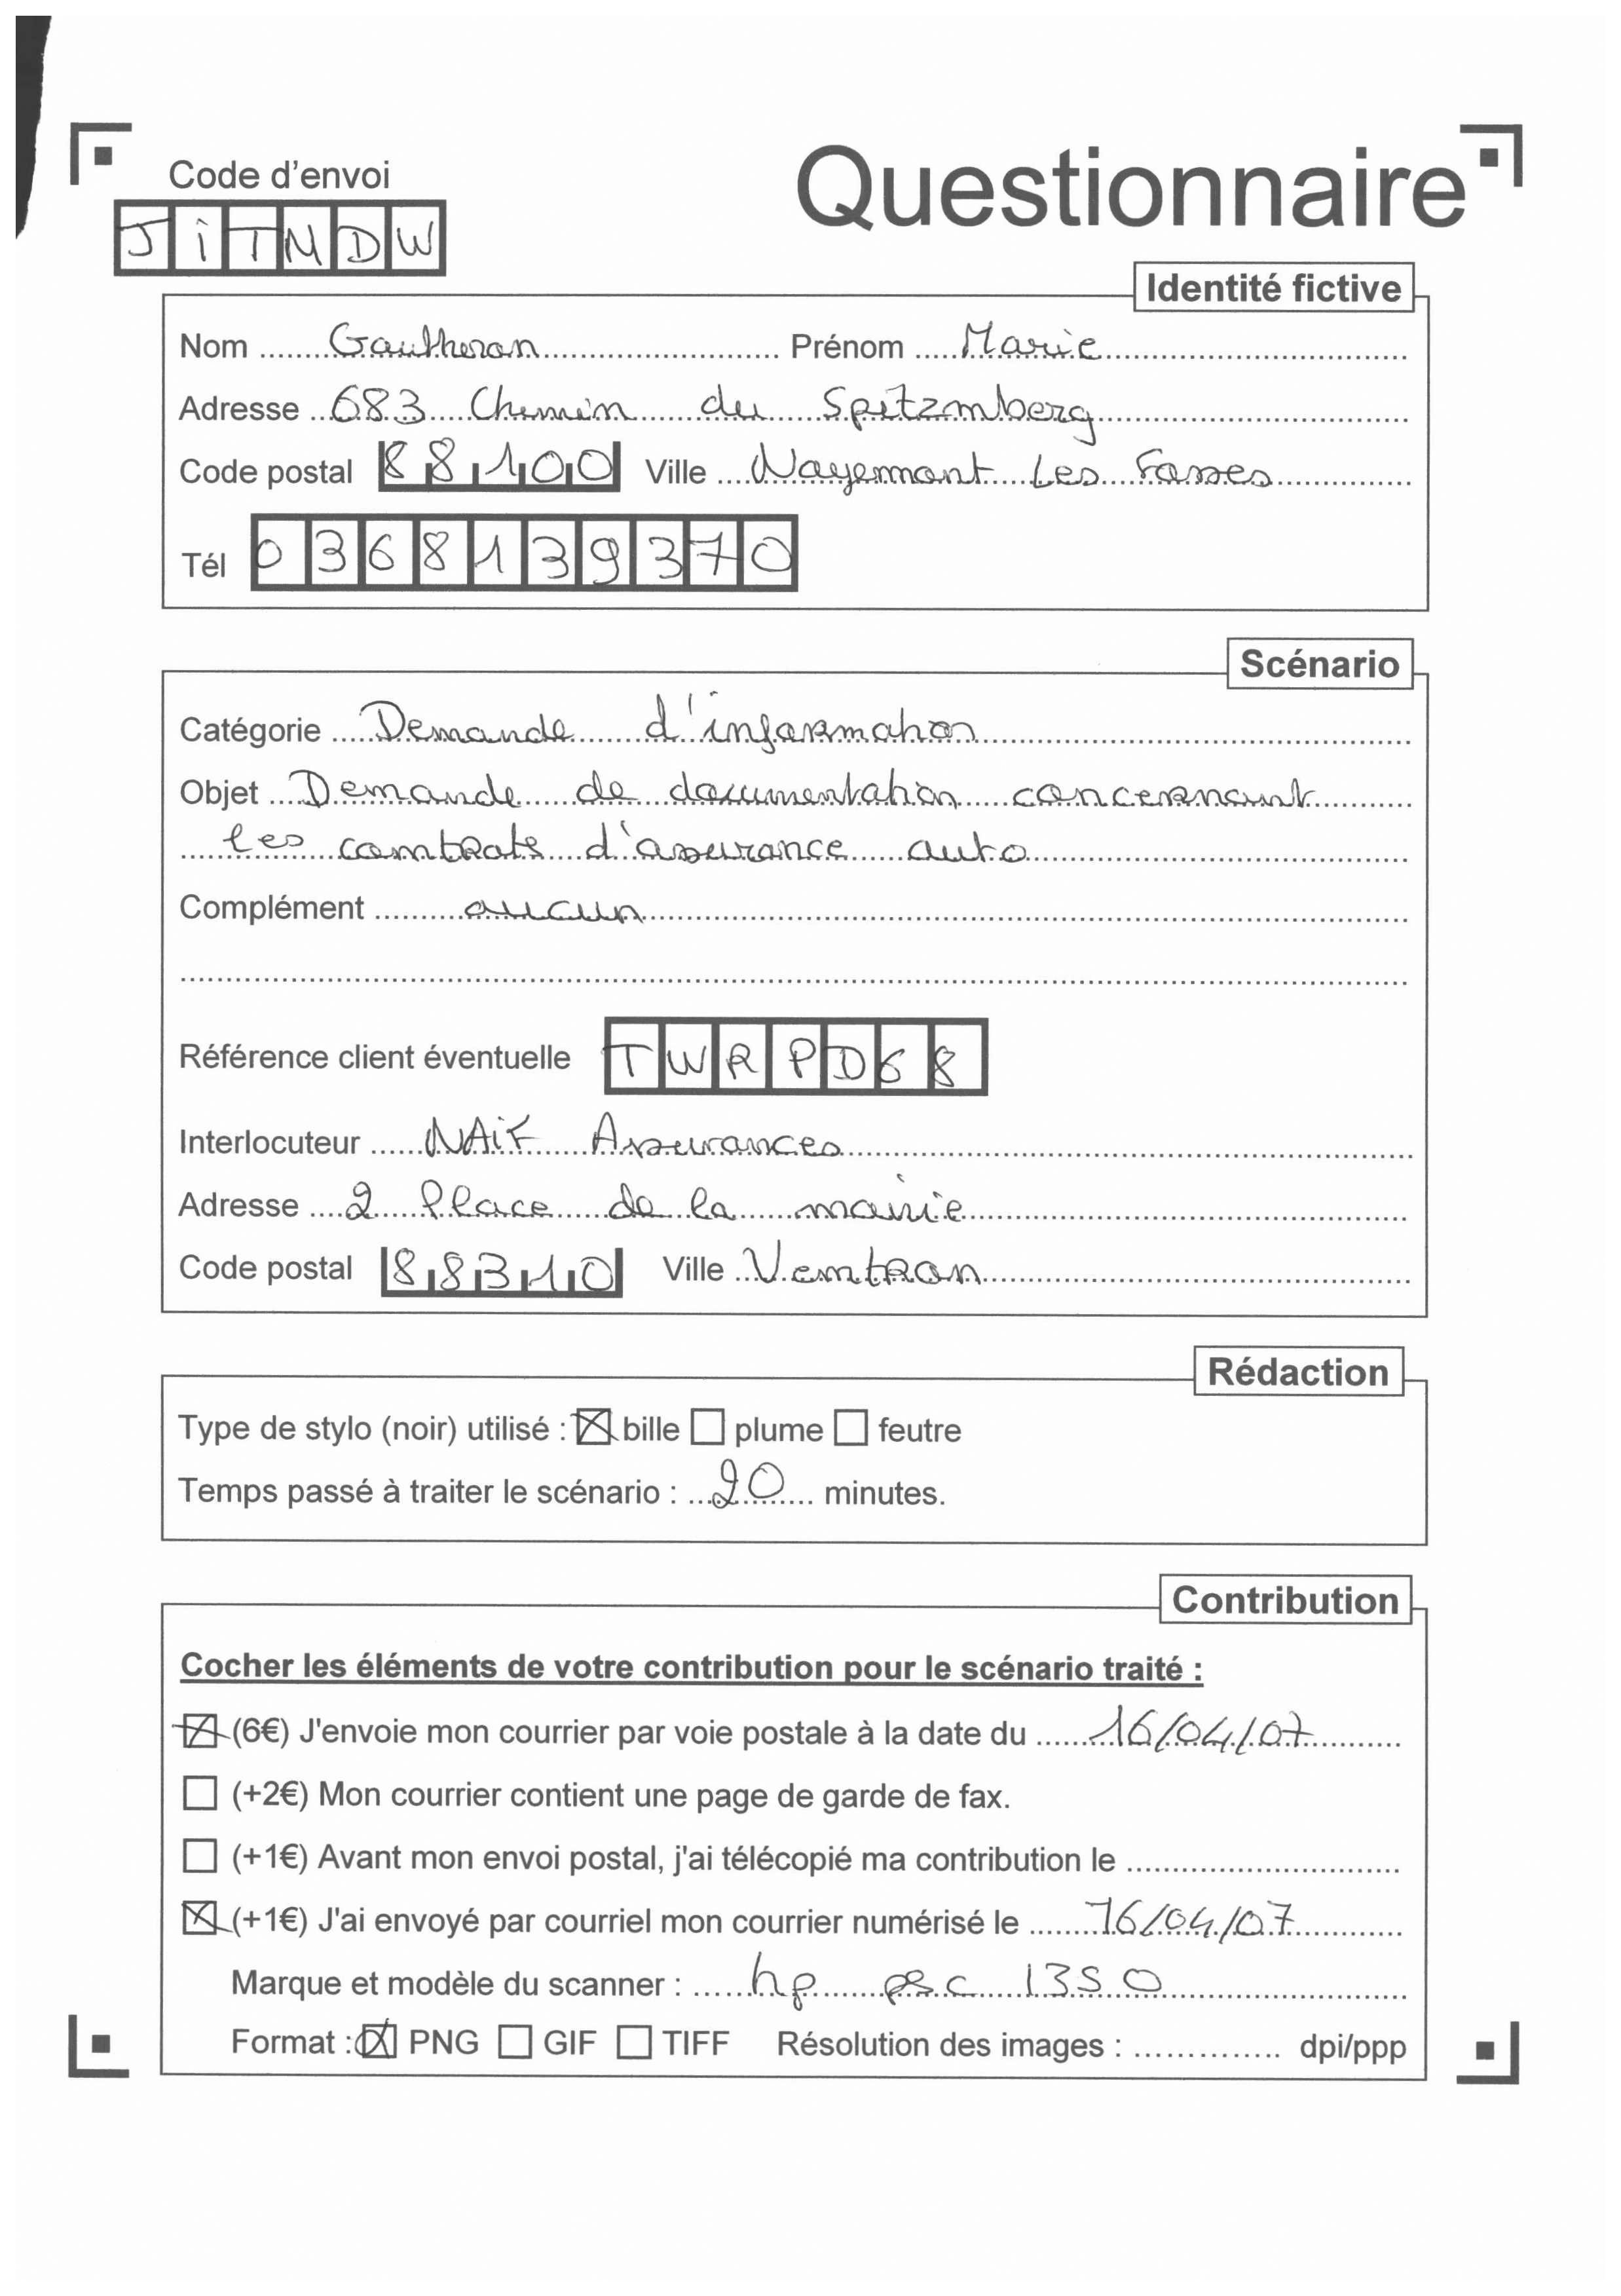 Code d'envoi
Questionnaire
JiTMDW
Identité fictive
Nom Gautheron Prénom Marie
Adresse 683 Chemin du Spitzemberg
Code postal 88100 Ville Nayemont Les Fosses
Tél 0368139370
Scénario
Catégorie Demande d'information
Objet Demande de documentation concernant
les contrats d'assurance auto
Complément aucun
Référence client éventuelle TWRPD68
Interlocuteur NAiF Assurances
Adresse 2 Place de la mairie
Code postal 88310 Ville Ventron
Rédaction
Type de stylo (noir) utilisé : bille plume feutre
Temps passé à traiter le scénario : 20 minutes.
Contribution
Cocher les éléments de votre contribution pour le scénario traité :
(6€) J'envoie mon courrier par voie postale à la date du 16/04/07
(+2€) Mon courrier contient une page de garde de fax.
(+1€) Avant mon envoi postal, j'ai télécopié ma contribution le
(+1€) J'ai envoyé par courriel mon courrier numérisé le 16/04/07
Marque et modèle du scanner : hp psc 1350
Format : PNG GIF TIFF Résolution des images : dpi/ppp